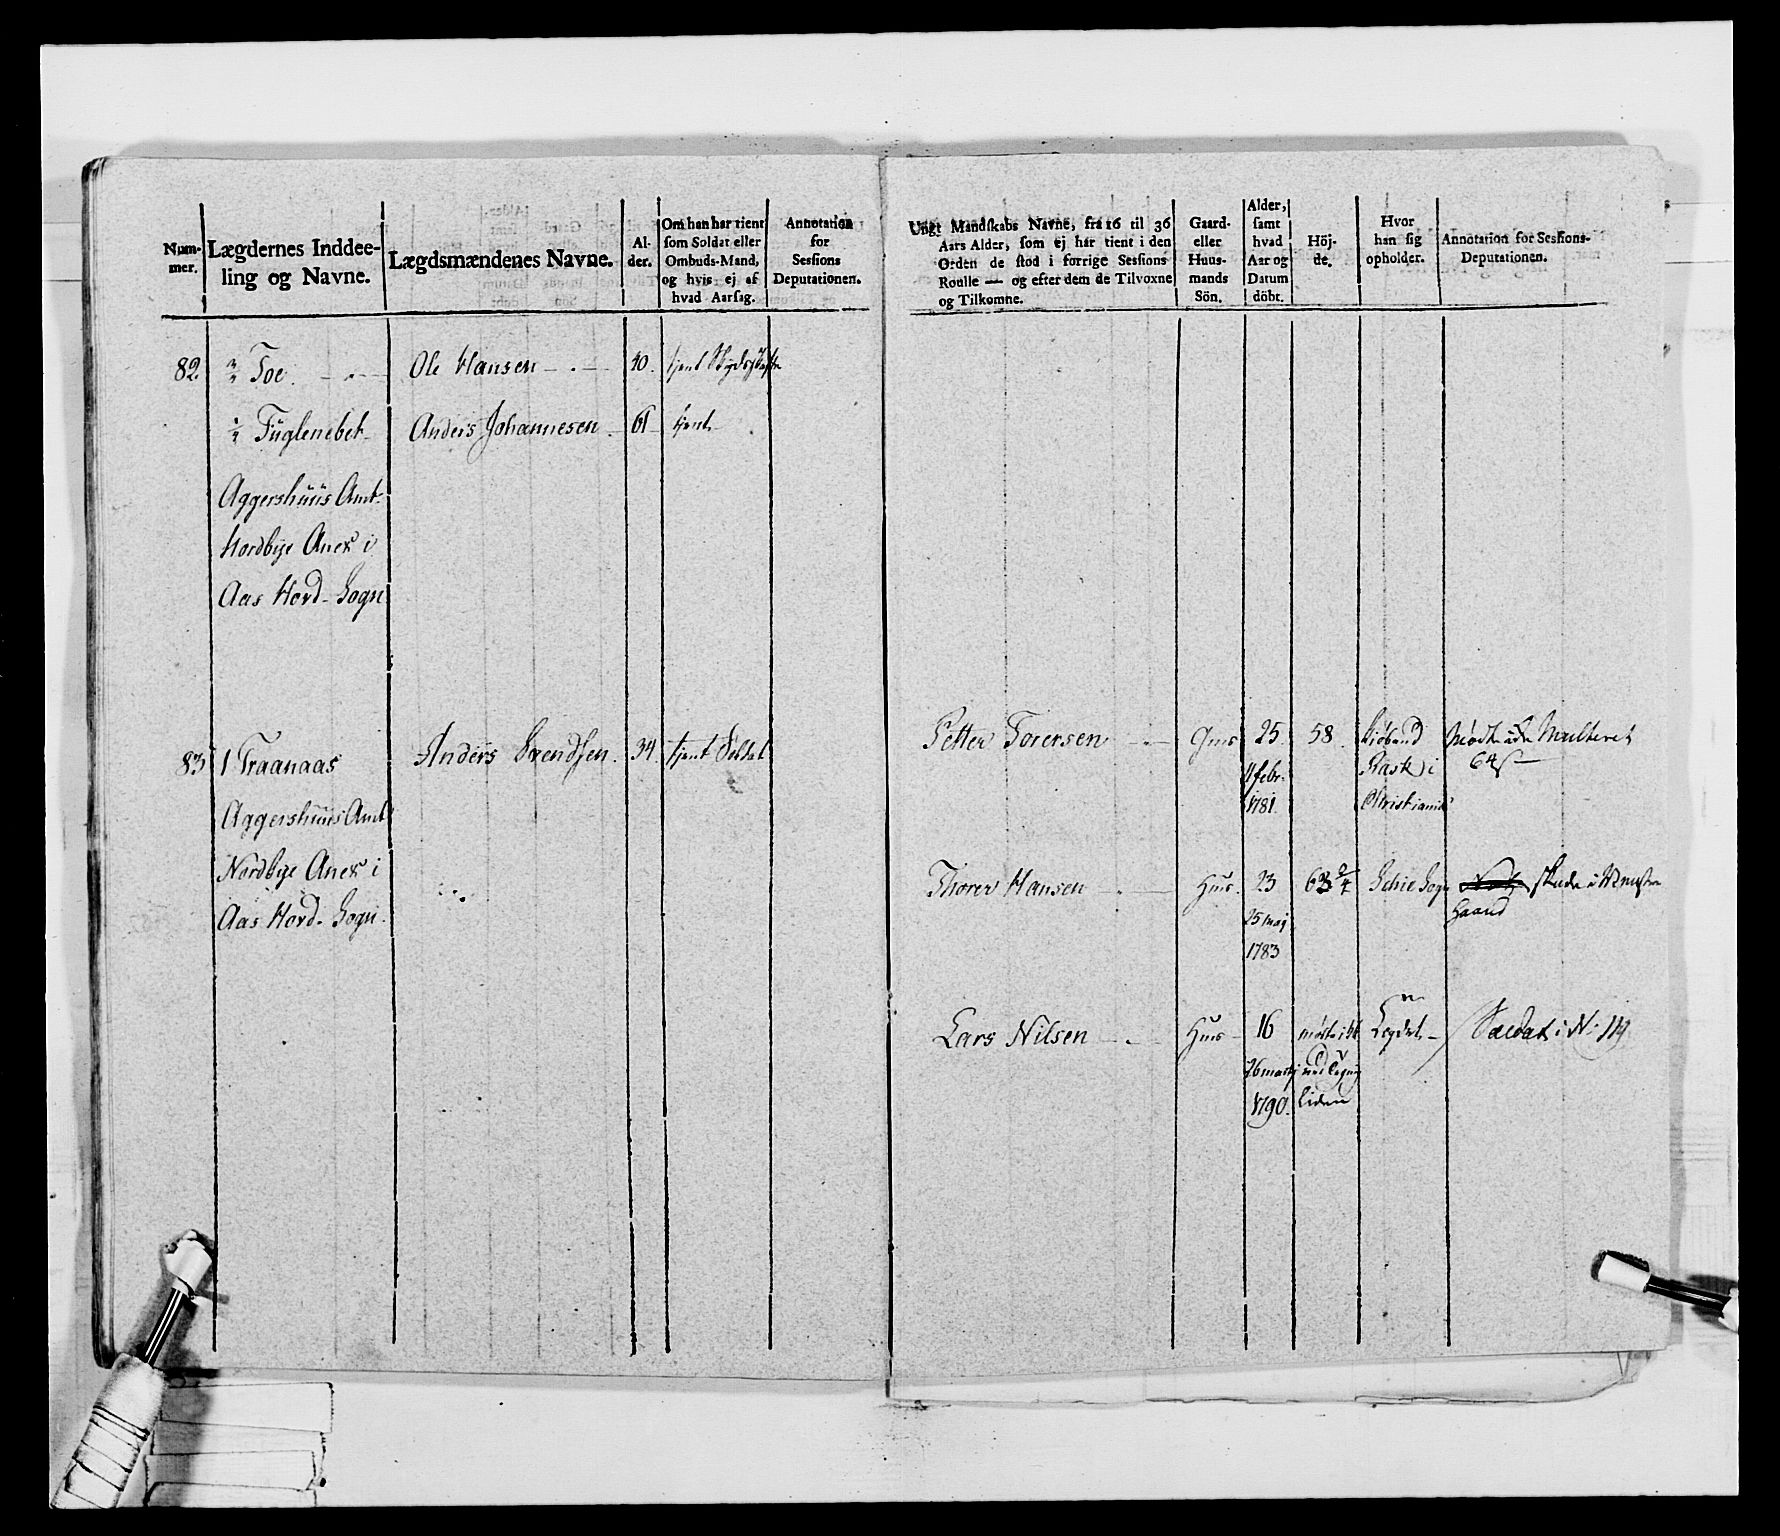 Num-
mer.
Lægdernes Inddee-
ling og Navne.
Lægdsmændenes Navne.
Al-
der.
Om han har tient
som Soldat eller
Ombuds-Mand,
og hvis ej af
hvad Aarsag.
Annotation
for
Sessions
Deputationen.
82. Toe Ole Hansen 40. tjent
½ Fuglenebek Anders Johannesen 61 tjent
Aggershuus Amt
Nordbye Anex i
Aas Hovd-Sogn
83 1 Traanaas Anders Svendsen. 34. tjent Soldat
Aggershuus Amt
Nordbye Anex i
Aas Hovd-Sogn.
Ungt Mandskabs Navne, fra 16 til 36
Aars Alder, som ej har tient i den
Orden de stod i forrige Sessions
Roulle — og efter dem de Tilvoxne
og Tilkomne.
Gaard-
eller
Huus-
mands
Sön.
Alder,
samt
hvad
Aar og
Datum
döbt.
Höj-
de.
Hvor
han sig
opholder.
Annotation for Sessions-
Deputationen.
Petter Torersen Gms 25. 58. Mödte Multeret
febr. Rask i 64
1781. Christiania
Thorer Hansen Hus. 23 63¾ Schie Sogn i Venstre
25 maj Haand
1783
Lars Nilsen Hus 16 Legdet Soldat i N: 119
26 martj
1790. Liden